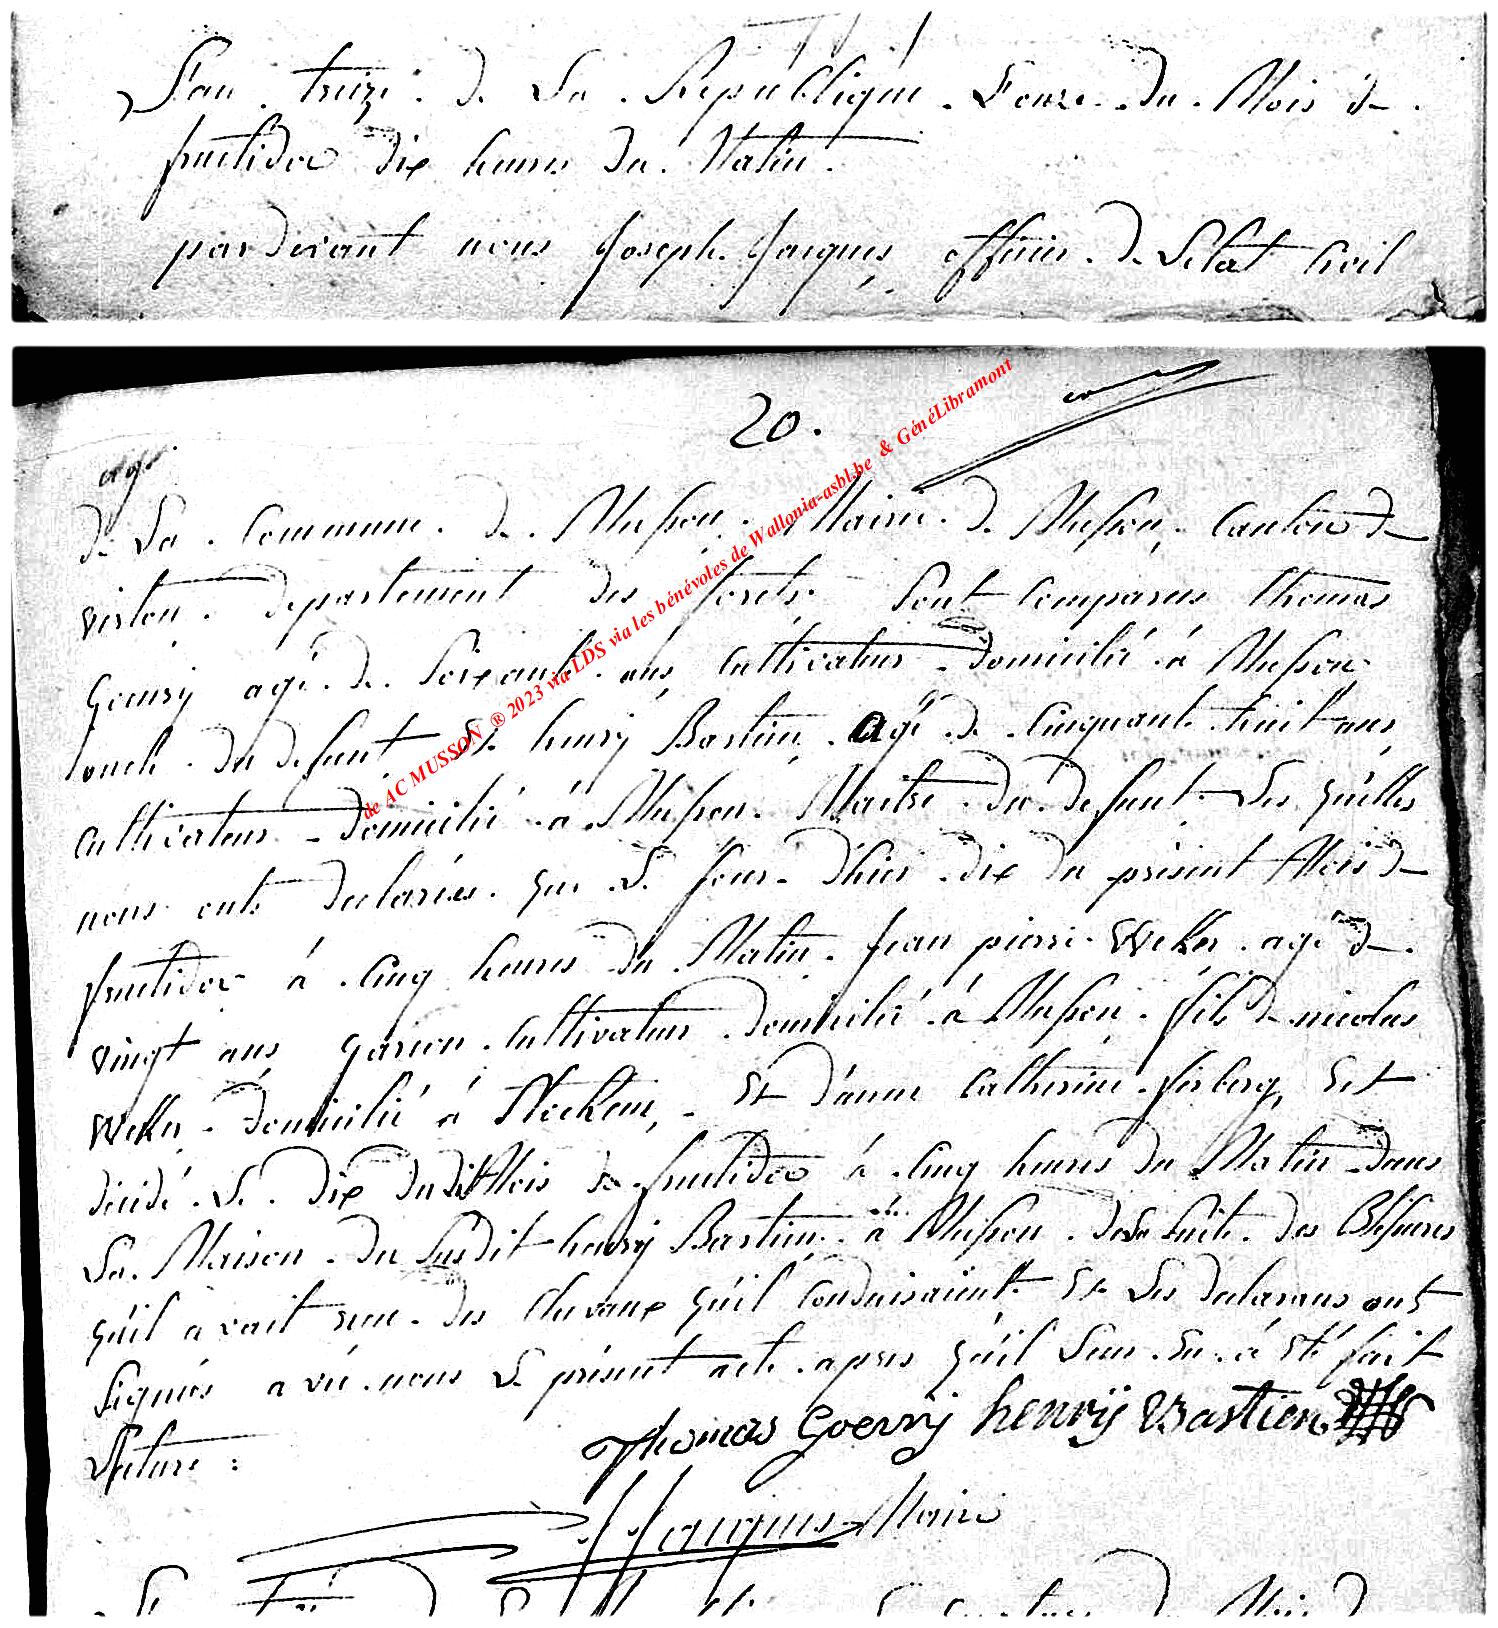 L'an treize de La Republique L'onze du Mois de
fructidor dix heures du Matin.
pardevant nous Joseph Jacques officier de Letat Civil
20.
de La Commune de Musson Mairie de Musson Canton de
virton departement des forets Sont Comparus thomas
Goeury agé de Soixante ans Cultivateur domicilié á Musson
oncle du defunt Et henry Bastien agé de Cinquante huit ans
Cultivateur domicilié á Musson Maitre du defunt Les quelles
nous onts declarées que Le Jour d'hier dix du présent Mois de
fructidor á Cinq heures du Matin Jean pierre Welker agé de
vingt ans garçon Cultivateur domicilié á Musson fils de nicolas
Welker domicilié á Stockem Et d'anne Catherine ferberg Est
décédé Le dix dudit Mois de fructidor á Cinq heures du Matin dans
La Maison du Susdit henry Bastien á Musson de La Suite des Blessures
qu'il avait reçu des Chevaux qu'il Conduisaient Et Les declarans ont
Signiés avéc nous Le présent acte apres qu'il Leur En á Eté fait
Lecture :
Thomas Goevry henrÿ Bastien
J Jacques Maire
de AC MUSSON ® 2023 via LDS via les bénévoles de Wallonia-asbl.be & GénéLibramont